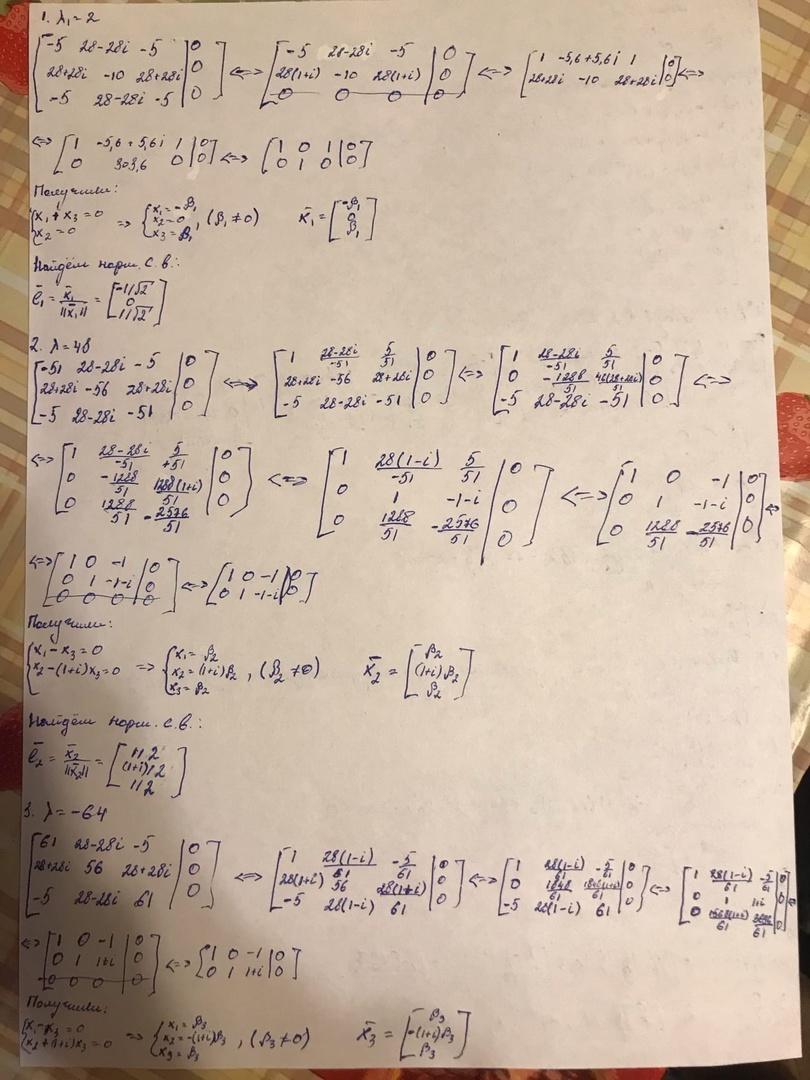 1. λ₁=2
[-5 28-28i -5 | 0; 28+28i -10 28+28i | 0; -5 28-28i -5 | 0] <=> [-5 28-28i -5 | 0; 28(1+i) -10 28(1+i) | 0; 0 0 0 | 0] <=> [1 -5,6+5,6i 1 | 0; 28+28i -10 28+28i | 0] <=>
<=> [1 -5,6+5,6i 1 | 0; 0 303,6 0 | 0] <=> [1 0 1 | 0; 0 1 0 | 0]
Получили:
{x₁+x₃=0; x₂=0 => {x₁=-β₁; x₂=0; x₃=β₁, (β₁≠0) x̄₁=[-β₁; 0; β₁]
Найдём норм. с.в.:
ē₁ = x̄₁/||x̄₁|| = [-1/√2; 0; 1/√2]
2. λ=48
[-51 28-28i -5 | 0; 28+28i -56 28+28i | 0; -5 28-28i -51 | 0] <=> [1 28-28i/-51 5/51 | 0; 28+28i -56 28+28i | 0; -5 28-28i -51 | 0] <=> [1 28-28i/-51 5/51 | 0; 0 -1288/51 46(28+28i)/51 | 0; -5 28-28i -51 | 0] <=>
<=> [1 28-28i/-51 5/+51 | 0; 0 -1288/51 1288(1+i)/51 | 0; 0 1288/51 -2576/51 | 0] <=> [1 28(1-i)/-51 5/51 | 0; 0 1 -1-i | 0; 0 1288/51 -2576/51 | 0] <=> [1 0 -1 | 0; 0 1 -1-i | 0; 0 1288/51 -2576/51 | 0] <=>
<=> [1 0 -1 | 0; 0 1 -1-i | 0; 0 0 0 | 0] <=> [1 0 -1 | 0; 0 1 -1-i | 0]
Получили:
{x₁-x₃=0; x₂-(1+i)x₃=0 => {x₁=β₂; x₂=(1+i)β₂; x₃=β₂, (β₂≠0) x̄₂=[β₂; (1+i)β₂; β₂]
Найдём норм. с.в.:
ē₂ = x̄₂/||x̄₂|| = [1/2; (1+i)/2; 1/2]
3. λ=-64
[61 28-28i -5 | 0; 28+28i 56 28+28i | 0; -5 28-28i 61 | 0] <=> [1 28(1-i)/61 -5/61 | 0; 28(1+i) 56 28(1+i) | 0; -5 28(1-i) 61 | 0] <=> [1 28(1-i)/61 -5/61 | 0; 0 1848/61 1848(1+i)/61 | 0; -5 28(1-i) 61 | 0] <=> [1 28(1-i)/61 -5/61 | 0; 0 1 1+i | 0; 0 /61 /61 | 0] <=>
<=> [1 0 -1 | 0; 0 1 1+i | 0; 0 0 0 | 0] <=> [1 0 -1 | 0; 0 1 1+i | 0]
Получили:
{x₁-x₃=0; x₂+(1+i)x₃=0 => {x₁=β₃; x₂=-(1+i)β₃; x₃=β₃, (β₃≠0) x̄₃=[β₃; -(1+i)β₃; β₃]